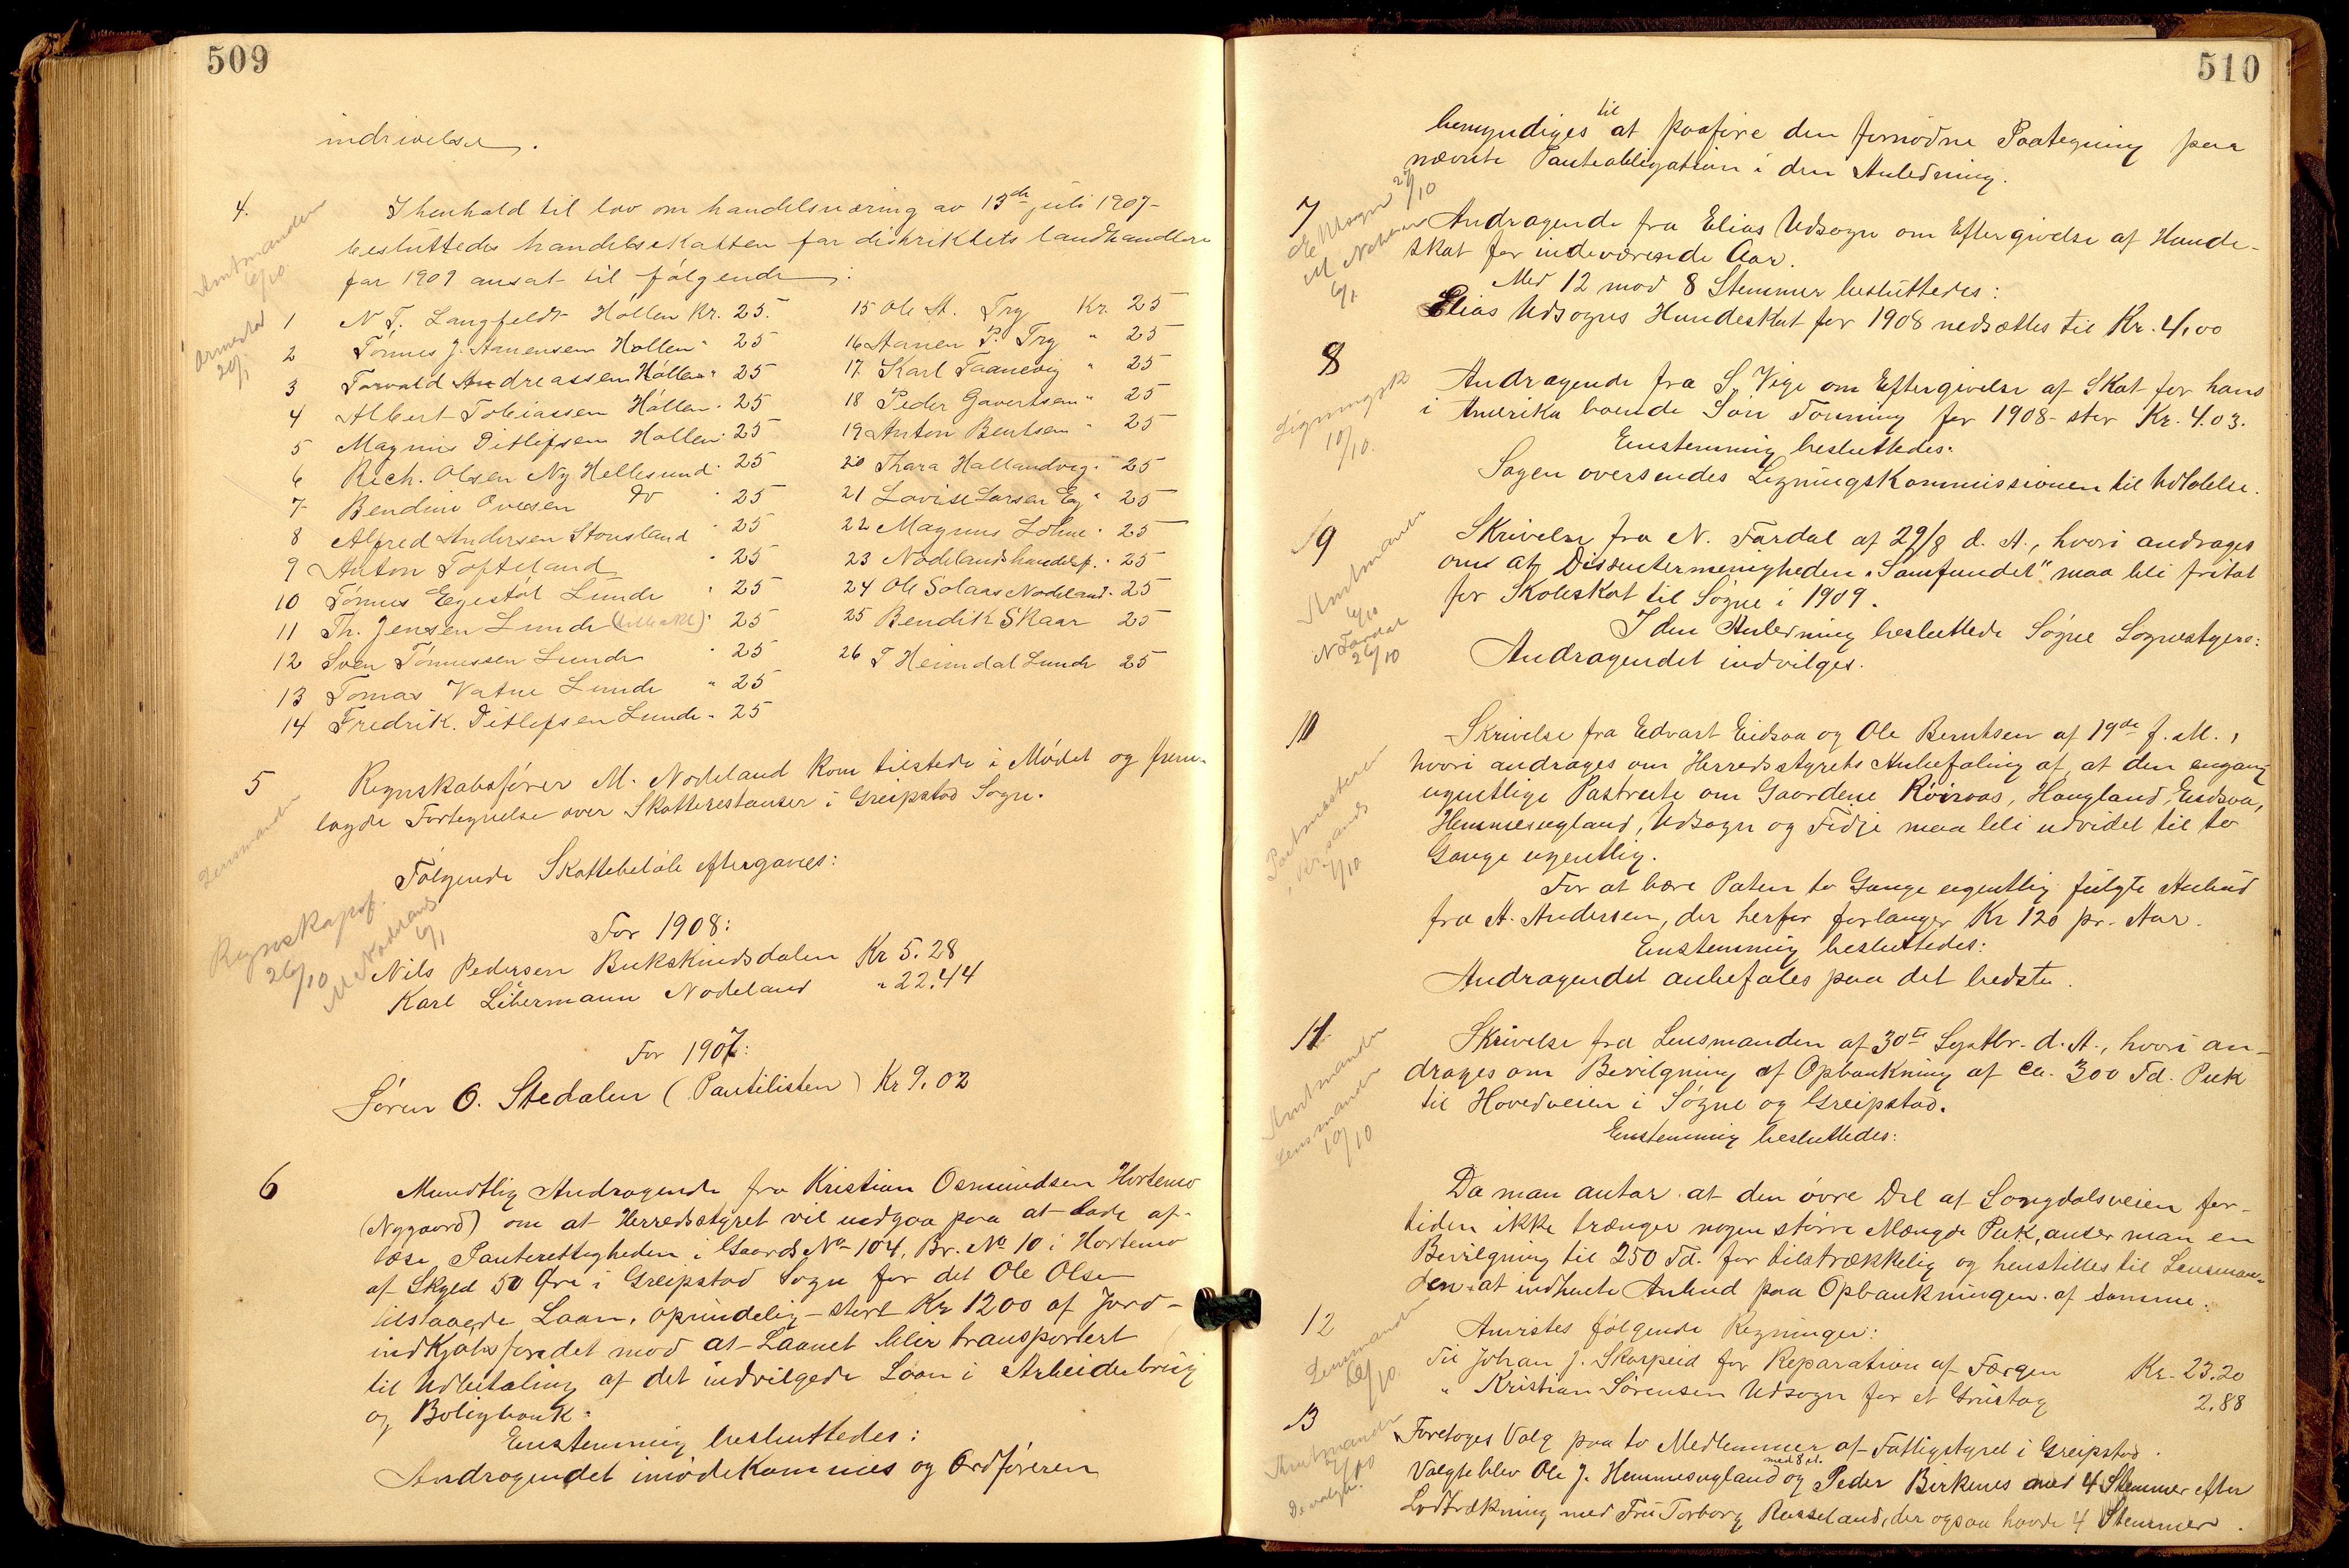 509
indrivelse.
4.
I henhold til lov om handelsnæring av 13de juli 1907-
besluttedes handelsskatten for distriktets landhandlere
for 1909 ansat til følgende:
Amtmanden
6/10
Ormestad
20/1
1 N T. Langfeldt Höllen Kr. 25.
2 Tönnes J. Aanensen Höllen " 25
3 Torvald Andreassen Höllen " 25
4 Albert Tobiassen Höllen " 25
5 Magnus Ditlefsen Höllen " 25
6 Rich. Olsen Ny Hellesund " 25
7 Bendine Ovesen Do " 25
8 Alfred Andersen Stousland " 25
9 Anton Tofteland " 25
10 Tönnes Egestöl Lunde " 25
11 Th. Jensen Lunde " 25
12 Sven Tönnessen Lunde " 25
13 Tomas Vatne Lunde " 25
14 Fredrik. Ditlefsen Lunde " 25
15 Ole A. Try Kr. 25
16 Aanen P. Try " 25
17. Karl Taanevig " 25
18 Peder Gavertsen " 25
19 Anton Bentsen " 25
20 Thara Hallandvig " 25
21 Lovise Larsen Eg " 25
22 Magnus Lohne " 25
23 Nodelands handelsf. " 25
24 Ole Solaas Nodeland " 25
25 Bendik Skaar 25
26 T Heimdal Lunde 25
5
Regnskabsförer M. Nodeland kom tilstede i Mödet og frem-
lagde Fortegnelse over Skatterestanser i Greipstad Sogn.
Lensmanden
Følgende Skattebeløb eftergaves:
Regnskapsf.
26/10
M Nodeland
6/1
For 1908:
Nils Pedersen Bukskindsdalen Kr 5.28
Karl Libermann Nodeland " 22.44
For 1907:
Sören O. Stedalen (Pantilisten) Kr 9.02
6
Mundtlig Andragende fra Kristian Osmundsen Hortemo
(Nygaard) om at Herredsstyret vil indgaa paa at lade af-
læse Panterettigheden i Gaards No 104, Br. No 10 i Hortemo
af Skyld 50 Øre i Greipstad Sogn for det Ole Olsen
tilstaaede Laan, oprindelig stort Kr 1200 af Jord-
indkjøbsfondet mod at Laanet blir transportert
til Udbetaling af det indvilgede Laan i Arbeiderbrug
og Boligbank.
Enstemmig besluttedes:
Andragendet imødekommes og Ordføreren
510
bemyndiges til at paaføre den fornødne Paategning paa
nævnte Panteobligation i den Anledning.
7
Andragende fra Elias Udsogn om Eftergivelse af Hunde-
skat for indeværende Aar.
Med 12 mod 8 Stemmer besluttedes:
Elias Udsogns Hundeskat for 1908 nedsættes til Kr. 4,00
E Udsogn 27/10
6/1
8
Andragende fra S. Vige om Eftergivelse af Skat for hans
i Amerika boende Søn Tønning for 1908 stor Kr. 4.03.
Enstemmig besluttedes:
Sagen oversendes Ligningskommissionen til Udtalelse.
Ligningsk
10/10.
9
Skrivelse fra N. Fardal af 29/8 d. A., hvori andrages
om at Dissentermenigheden "Samfundet" maa bli fritat
for Skoleskat til Søgne i 1909.
I den Anledning besluttede Søgne Sognestyre:
Andragendet indvilges.
Amtmanden
6/10
N Fardal
26/10
10
Skrivelse fra Edvart Eidsaa og Ole Berntsen af 19de f. M.,
hvori andrages om Herredsstyrets Anbefaling af, at den engang
ugentlige Postrute om Gaardene Röiraas, Haugland, Eidsaa,
Hemmesvgland, Udsogn og Fidje maa bli udvidet til to
Gange ugentlig.
For at bære Posten to Gange ugentlig fulgte Anbud
fra A. Andersen, der herfor forlanger Kr 120 pr. Aar.
Enstemmig besluttedes:
Andragendet anbefales paa det bedste.
Postmesteren
i Kr.sands
6/10
11
Skrivelse fra Lensmanden af 30te Septbr. d. A., hvori an-
drages om Bevilgning af Opbankning af ca. 300 Td. Puk
til Hovedveien i Søgne og Greipstad.
Enstemmig besluttedes:
Amtmanden
Lensmanden
10/10
Da man antar at den övre Del af Songdalsveien for-
tiden ikke trænger nogen större Mængde Puk, anser man en
Bevilgning til 250 Td. for tilstrækkelig og henstilles til Lensman-
den at indhente Anbud paa Opbankningen af samme.
12
Anvistes følgende Regninger:
Til Johan J. Skarpeid for Reparation af Færgen Kr. 23.20
" Kristian Sørensen Udsogn for et Grustag 2.88
Lensmanden
10/10.
13
Foretoges Valg paa to Medlemmer af Fattigstyret i Greipstad.
Valgte blev Ole J. Hemmesvgland med 8 st. og Peder Birkenes med 4 Stemmer efter
Lodtrækning med Fru Torborg Rosseland, der ogsaa havde 4 Stemmer.
Amtmanden
6/10
De valgte.